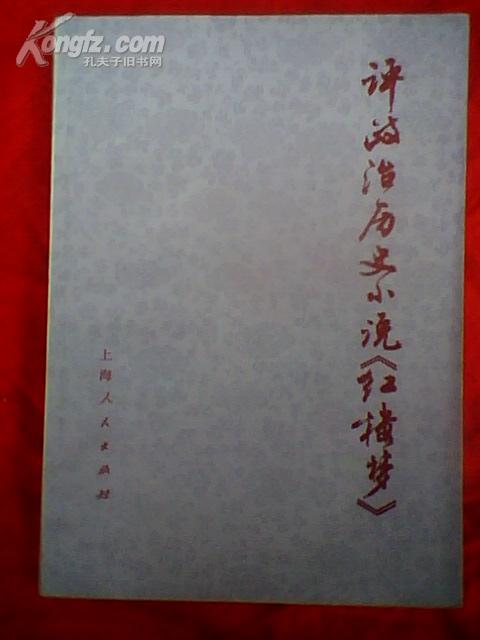 Kongfz.com
孔夫子旧书网
评政治历史小说《红楼梦》
上海人民出版社